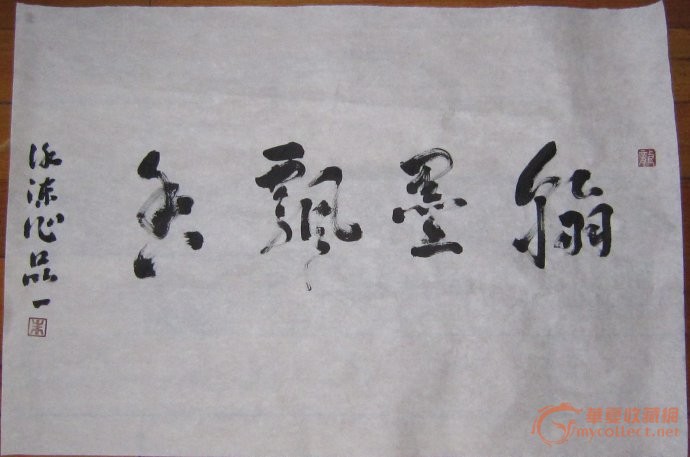 翰墨飘香
作品一
華夏收藏網
mycollect.net